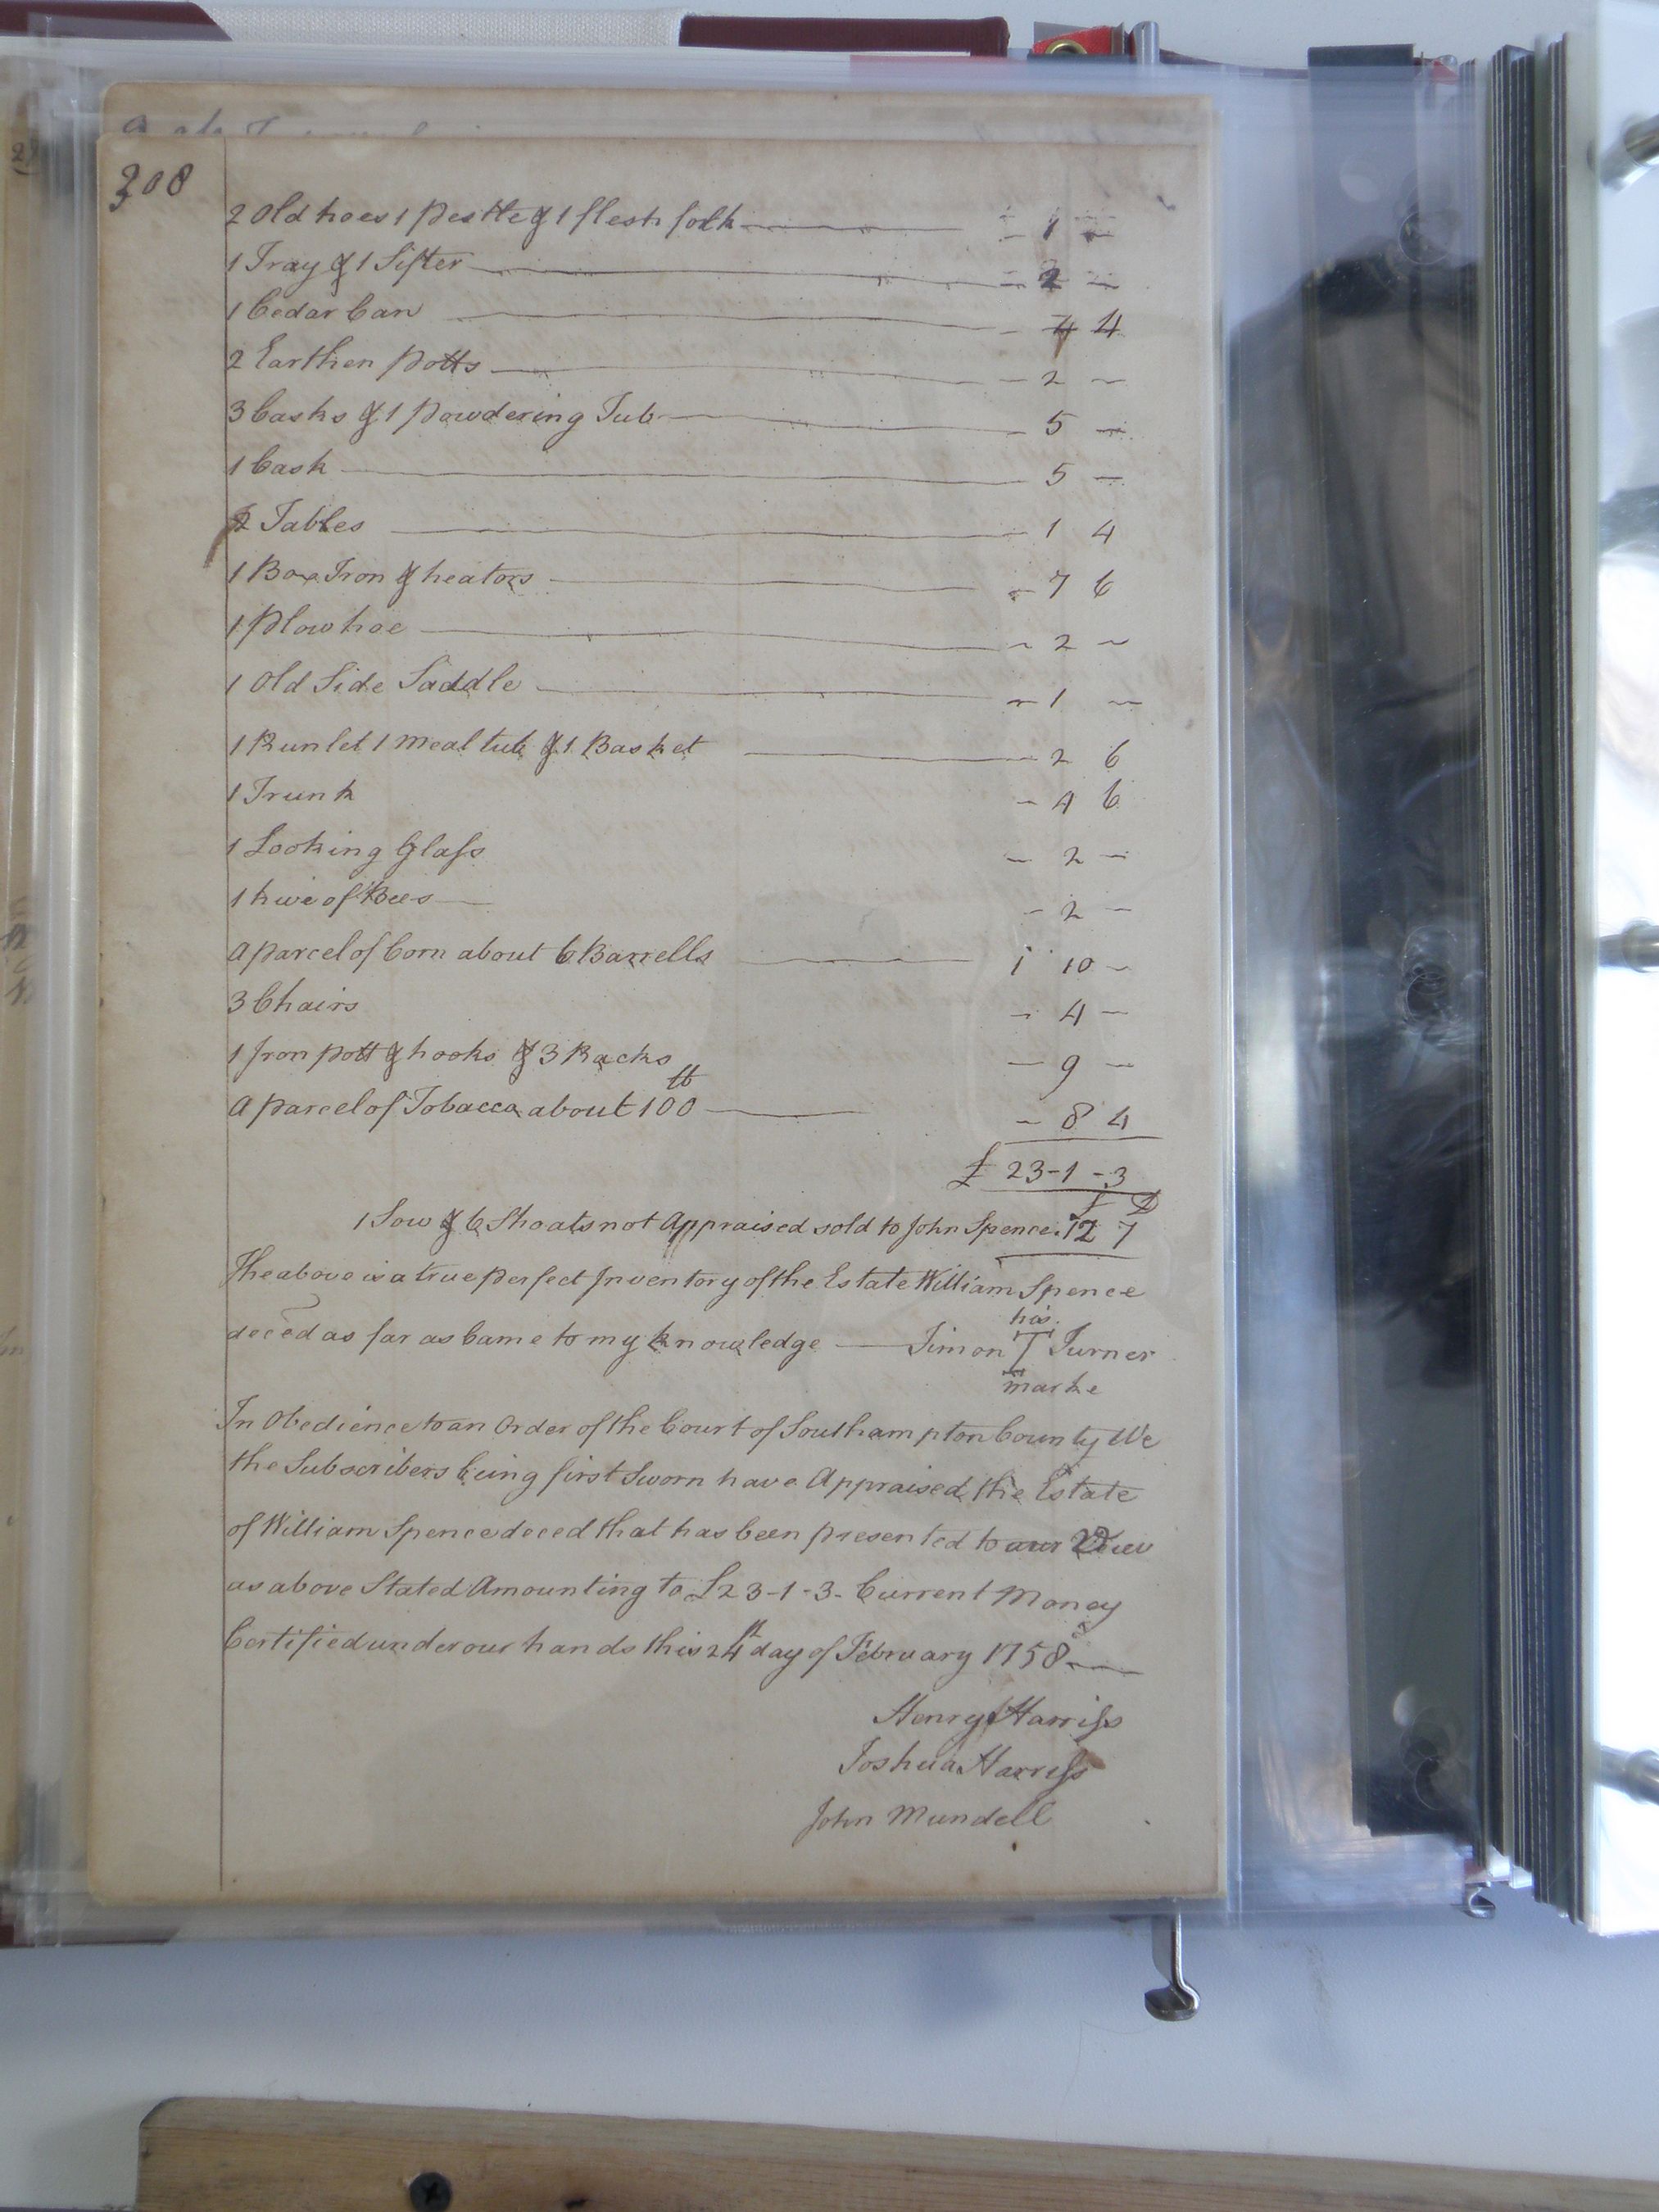 308
2 Old hoes 1 pestle & 1 flesh fork - 1 -
1 Tray & 1 Sifter - 2 -
1 Cedar Can - 4 4
2 Earthen potts - 2 -
3 Casks & 1 powdering Tub - 5 -
1 Cask 5 -
2 Tables - 1 4
1 Box Iron & heators - 7 6
1 Plow hoe - 2 -
1 Old Side Saddle - 1 -
1 Runlet 1 meal tub & 1 Basket - 2 6
1 Trunk - 4 6
1 Looking Glass - 2 -
1 hive of Bees - 2 -
a parcel of Corn about 6 Barrells 1 10 -
3 Chairs - 4 -
1 Iron pott & hooks & 3 Racks - 9 -
a parcel of Tobacco about 100 lb - 8 4
£ 23-1-3
S D
1 Sow & 6 Shoats not Appraised sold to John Spence: 12 7
The above is a true perfect Inventory of the Estate William Spence
his
deced as far as Came to my knowledge — Simon T Turner
marke
In Obedience to an Order of the Court of Southampton County We
the Subscribers being first Sworn have Appraised the Estate
of William Spence deced that has been presented to our View
as above Stated Amounting to £23-1-3- Current Money
Certified under our hands this 24th day of February 1758
Henry Harriss
Joshua Harriss
John Mundell